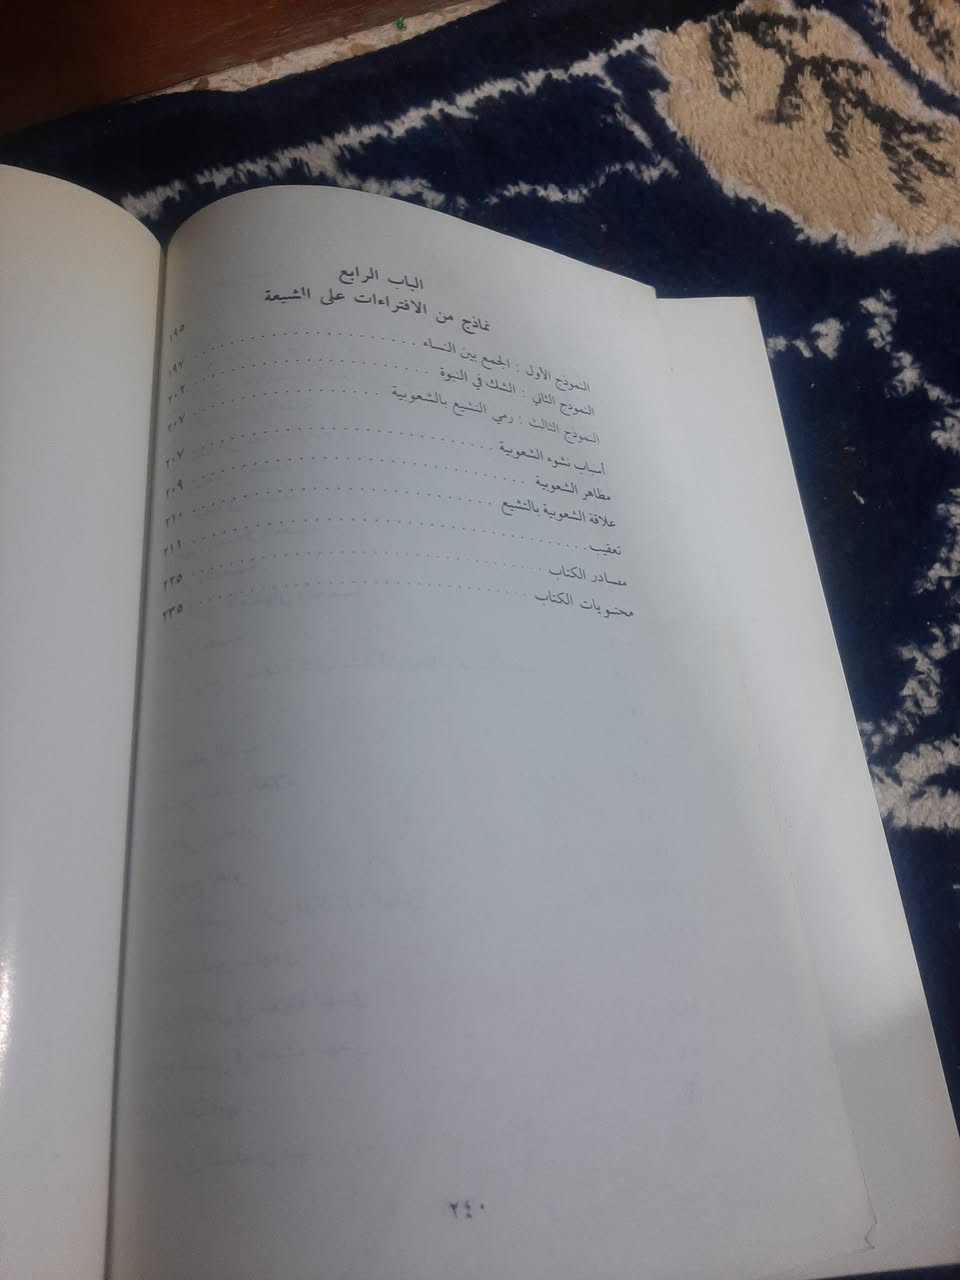 الباب الرابع
نماذج من الافتراءات على الشيعة
النموذج الأول : الجمع بين النساء . . . . . . . . . . . . . . . . . . . . ١٩٥
النموذج الثاني : الشك في النبوة . . . . . . . . . . . . . . . . . . . . ١٩٧
النموذج الثالث : رمي التشيع بالشعوبية . . . . . . . . . . . . . . . . ٢٠٢
أسباب نشوء الشعوبية . . . . . . . . . . . . . . . . . . . . ٢٠٧
مظاهر الشعوبية . . . . . . . . . . . . . . . . . . . . ٢٠٧
علاقة الشعوبية بالتشيع . . . . . . . . . . . . . . . . . . . . ٢٠٩
تعقيب . . . . . . . . . . . . . . . . . . . . ٢١٠
مصادر الكتاب . . . . . . . . . . . . . . . . . . . . ٢٢٥
محتويات الكتاب . . . . . . . . . . . . . . . . . . . . ٢٣٥
٢٤٠